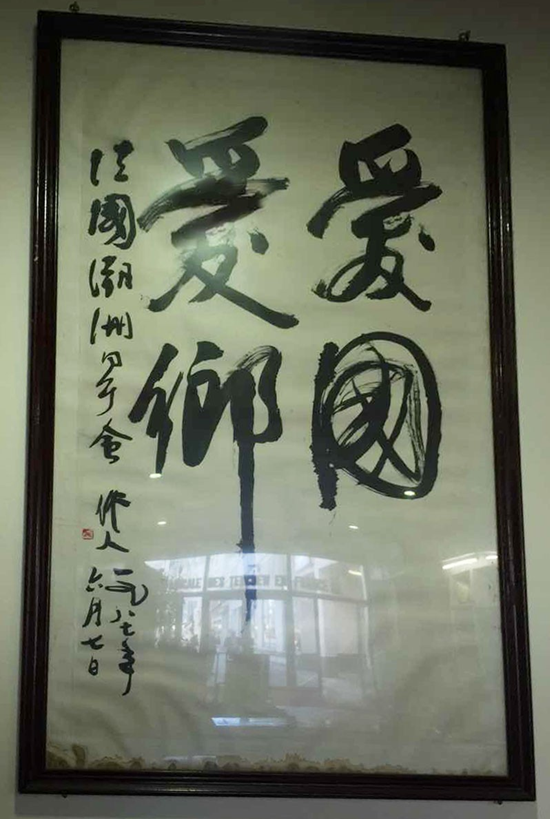 愛國
愛鄉
法國潮洲 會 作人 一九八七年
六月七日
EN FRANCE